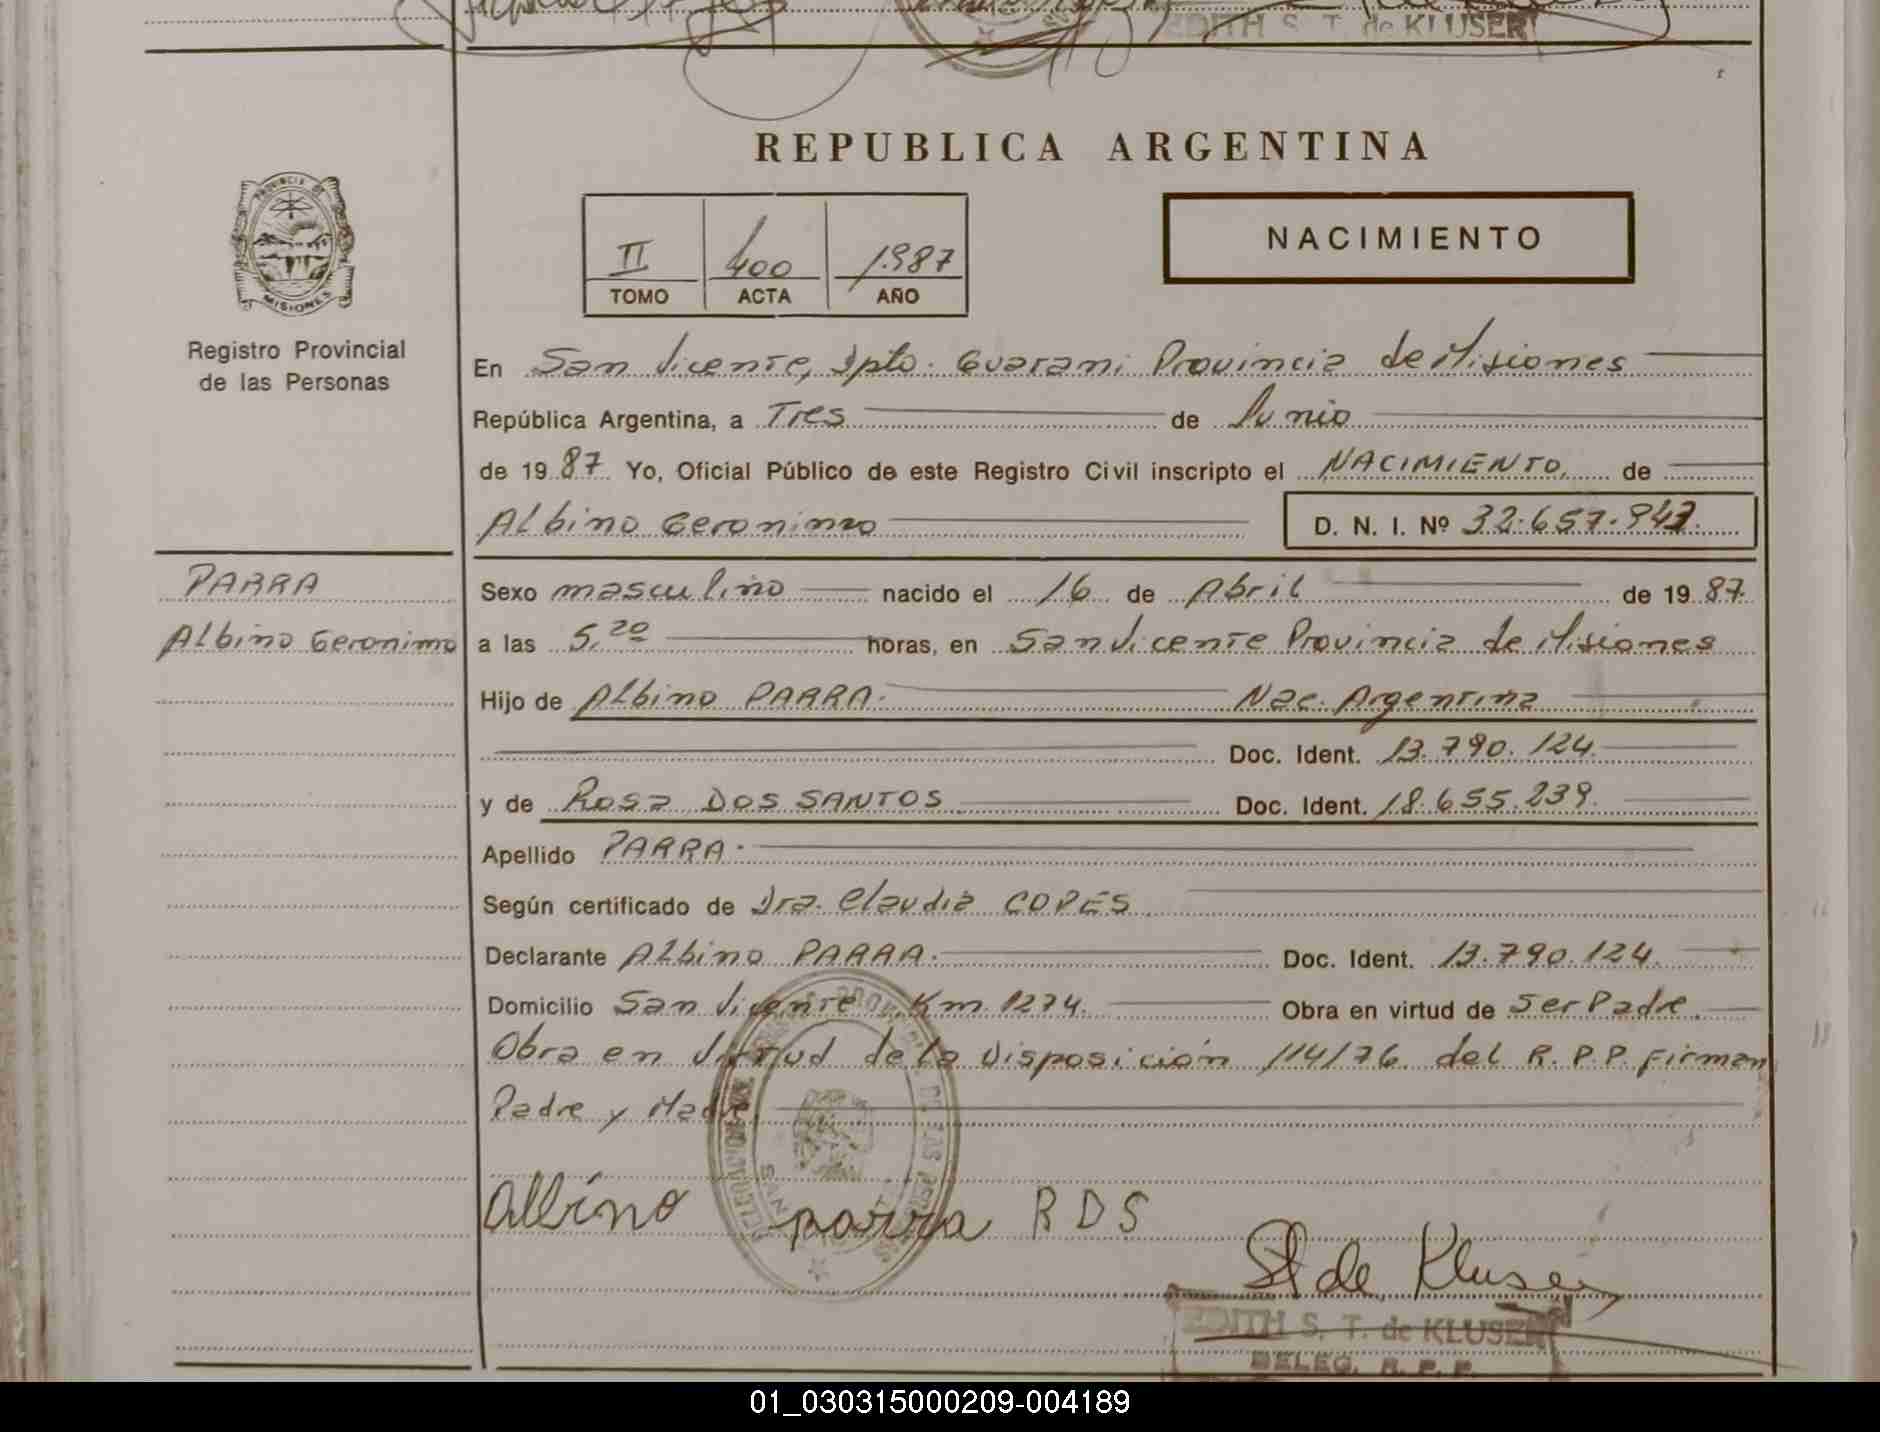 EDITH S. T. de KLUSER
REPUBLICA ARGENTINA
PROVINCIA DE
MISIONES
Registro Provincial
de las Personas
II 400 1987
TOMO ACTA AÑO
NACIMIENTO
En San Vicente, Dpto. Guarani Provincia de Misiones
República Argentina, a Tres de Junio
de 1987 Yo, Oficial Público de este Registro Civil inscripto el NACIMIENTO, de
Albino Geronimo D. N. I. Nº 32.657.943
PARRA
Albino Geronimo
Sexo masculino nacido el 16 de Abril de 1987.
a las 5,20 horas, en San Vicente Provincia de Misiones
Hijo de Albino PARRA. Nac. Argentina
Doc. Ident. 13.790.124.
y de Rosa DOS SANTOS Doc. Ident. 18.655.239.
Apellido PARRA.
Según certificado de Dra. Claudia COPES
Declarante Albino PARRA. Doc. Ident. 13.790.124.
Domicilio San Vicente, Km. 1274. Obra en virtud de Ser Padre.
Obra en virtud de la Disposición 114/76 del R.P.P. Firman
Padre y Madre.
Albino parra R D S
St de Kluser
EDITH S. T. de KLUSER
DELEG. R. P. P.
01_030315000209-004189